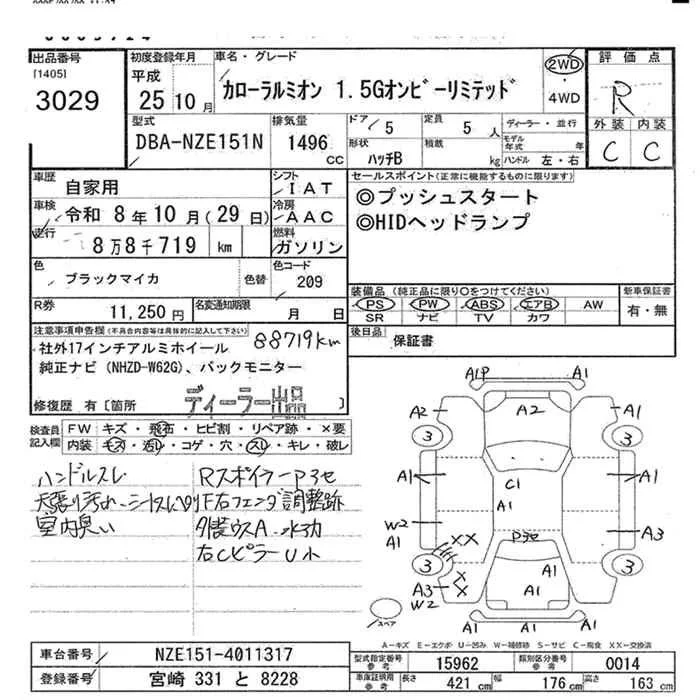 出品番号
[1405]
3029
初度登録年月
平成
25年10月
車名・グレード
カローラルミオン 1.5Gオンビーリミテッド
2WD
・
4WD
評価点
R
外装 内装
C C
型式
DBA-NZE151N
排気量
1496
CC
ドア
5
形状
ハッチB
定員
5 人
積載
kg
ディーラー・並行
モデル年式 年
ハンドル 左・右
車歴
自家用
車検
令和 8年10月(29日)
走行
8万8千719 km
シフト
IAT
冷房
AAC
燃料
ガソリン
色
ブラックマイカ
色替
色コード
209
R券
11,250円
名変通知期限
月 日
セールスポイント(正常に機能するものに限ります)
◎プッシュスタート
◎HIDヘッドランプ
装備品(純正品に限り○をつけてください)
PS PW ABS エアB AW
SR ナビ TV カワ
新車保証書
有・無
後日品
保証書
注意事項申告欄(不具合内容等は具体的に記入して下さい)
88719km
社外17インチアルミホイール
純正ナビ(NHZD-W62G)、バックモニター
ディーラー出品
修復歴 有〔箇所 〕
検査員記入欄
FW キズ・飛石・ヒビ割・リペア跡・×要
内装 キズ・汚レ・コゲ・穴・スレ・キレ・破レ
ハンドルスレ
天張り汚れ
室内臭い
Rスポイラー P3セ
F右フェンダ調整跡
右Cピラー U小
A1P
A1
A2
A2
A1
3
3
A1
C1
A1
A1
W2
A1
XX
P3セ
A3
3
3
X
X
A3
W2
A1
A1
A1
A1
A1
スペア
A-キズ E-エクボ U-凹み W-補修跡 S-サビ C-腐食 XX-交換済
車台番号
NZE151-4011317
登録番号
宮崎 331 と 8228
型式指定番号
参考
15962
類別区分番号
参考
0014
車庫証明用
参考
長さ 421 cm 幅 176 cm 高さ 163 cm